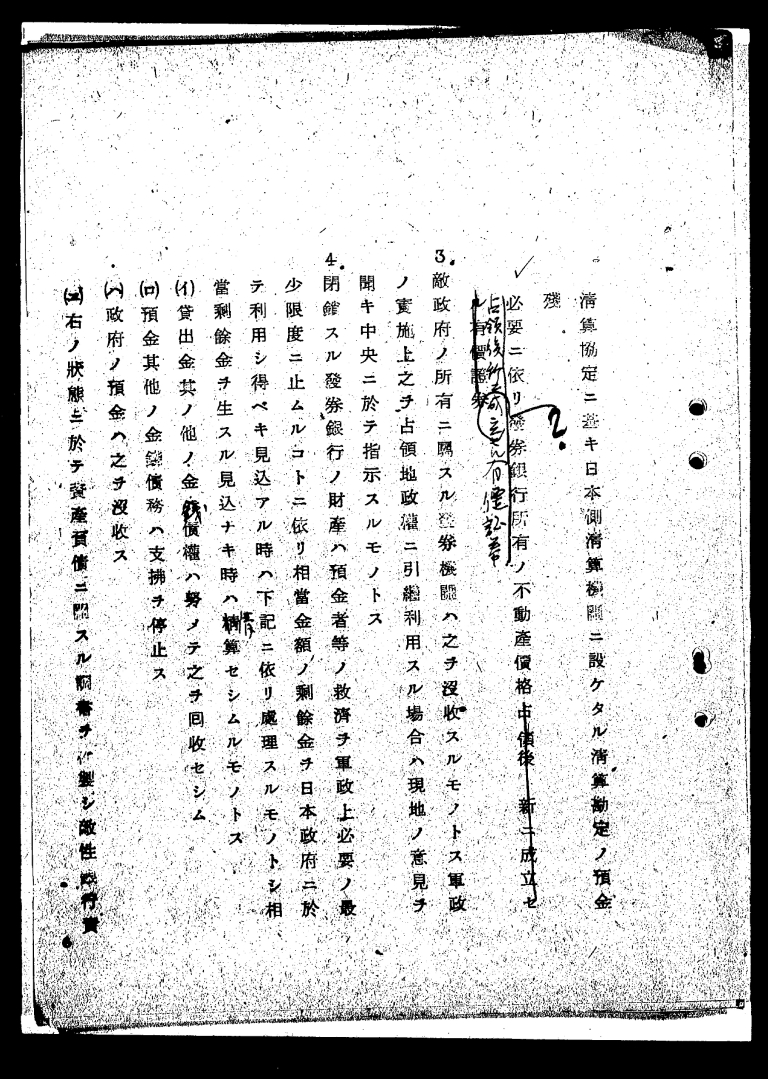 清算協定ニ基キ日本側清算機關ニ設ケタル清算勘定ノ預金
殘
必要ニ依リ發券銀行所有ノ不動產價格占領後新ニ成立セ
ル有價證券
占領後新
有價証券
2.
3. 敵政府ノ所有ニ關スル發券機關ハ之ヲ沒收スルモノトス軍政
ノ實施上之ヲ占領地政權ニ引繼利用スル場合ハ現地ノ意見ヲ
聞キ中央ニ於テ指示スルモノトス
4. 閉鎖スル發券銀行ノ財產ハ預金者等ノ救濟ヲ軍政上必要ノ最
少限度ニ止ムルコトニ依リ相當金額ノ剩餘金ヲ日本政府ニ於
テ利用シ得ベキ見込アル時ハ下記ニ依リ處理スルモノトシ相
當剩餘金ヲ生スル見込ナキ時ハ清算セシムルモノトス
(イ) 貸出金其ノ他ノ金錢債權ハ努メテ之ヲ回收セシム
(ロ) 預金其他ノ金錢債務ハ支拂ヲ停止ス
(ハ) 政府ノ預金ハ之ヲ沒收ス
(ニ) 右ノ狀態ニ於テ資產負債ニ關スル調書ヲ作製シ敵性銀行資
6